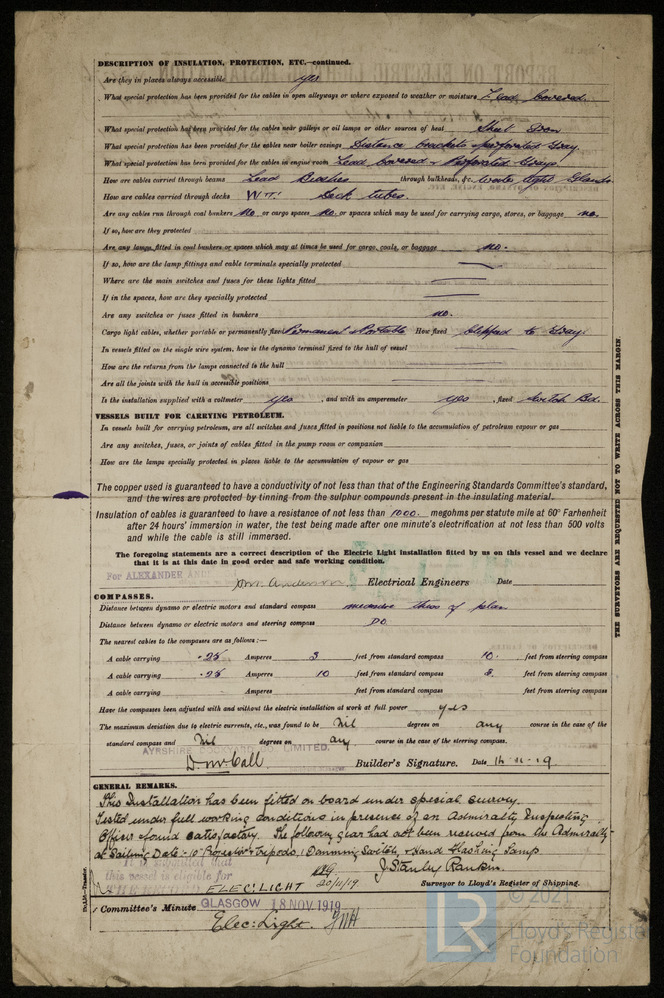 DESCRIPTION OF INSULATION, PROTECTION, ETC.—continued.
Are they in places always accessible yes
What special protection has been provided for the cables in open alleyways or where exposed to weather or moisture Lead Covered.
What special protection has been provided for the cables near galleys or oil lamps or other sources of heat Sheet Iron
What special protection has been provided for the cables near boiler casings Distance brackets & perforated Tray.
What special protection has been provided for the cables in engine room Lead covered & Perforated Trays.
How are cables carried through beams Lead Bushes through bulkheads, &c. Water tight Glands.
How are cables carried through decks W.T. Deck tubes.
Are any cables run through coal bunkers No or cargo spaces No. or spaces which may be used for carrying cargo, stores, or baggage no.
If so, how are they protected
Are any lamps fitted in coal bunkers or spaces which may at times be used for cargo, coals, or baggage no.
If so, how are the lamp fittings and cable terminals specially protected
Where are the main switches and fuses for these lights fitted
If in the spaces, how are they specially protected
Are any switches or fuses fitted in bunkers no.
Cargo light cables, whether portable or permanently fixed Permanent & Portable How fixed Clipped to Tray.
In vessels fitted on the single wire system, how is the dynamo terminal fixed to the hull of vessel
How are the returns from the lamps connected to the hull
Are all the joints with the hull in accessible positions
Is the installation supplied with a voltmeter yes, and with an amperemeter yes, fixed Switch Bd.
VESSELS BUILT FOR CARRYING PETROLEUM.
In vessels built for carrying petroleum, are all switches and fuses fitted in positions not liable to the accumulation of petroleum vapour or gas
Are any switches, fuses, or joints of cables fitted in the pump room or companion
How are the lamps specially protected in places liable to the accumulation of vapour or gas
The copper used is guaranteed to have a conductivity of not less than that of the Engineering Standards Committee's standard,
and the wires are protected by tinning from the sulphur compounds present in the insulating material.
Insulation of cables is guaranteed to have a resistance of not less than 1000 megohms per statute mile at 60° Farhenheit
after 24 hours' immersion in water, the test being made after one minute's electrification at not less than 500 volts
and while the cable is still immersed.
The foregoing statements are a correct description of the Electric Light installation fitted by us on this vessel and we declare
that it is at this date in good order and safe working condition.
For ALEXANDER
Anderson Electrical Engineers Date
COMPASSES.
Distance between dynamo or electric motors and standard compass of plan
Distance between dynamo or electric motors and steering compass DO
The nearest cables to the compasses are as follows:—
A cable carrying .25 Amperes 3 feet from standard compass 10. feet from steering compass
A cable carrying .25 Amperes 10 feet from standard compass 3. feet from steering compass
A cable carrying Amperes feet from standard compass feet from steering compass
Have the compasses been adjusted with and without the electric installation at work at full power yes
The maximum deviation due to electric currents, etc., was found to be Nil degrees on any course in the case of the
standard compass and Nil degrees on any course in the case of the steering compass.
AYRSHIRE DOCKYARD CO. LIMITED.
D. McCall Builder's Signature. Date 14.11.19
GENERAL REMARKS.
This Installation has been fitted on board under special survey.
Tested under full working conditions in presence of an Admiralty Inspecting
Officer & found satisfactory. The following gear had not been received from the Admiralty
at Sailing Date:- 10" Projector & Tripods, 1 Damming Switch, & Hand Flashing Lamp.
It is submitted that
this vessel is eligible for
THE RECORD
ELEC. LIGHT
20/11/19
J. Stanley Rankin.
Surveyor to Lloyd's Register of Shipping.
Committee's Minute GLASGOW 18 NOV. 1919
Elec: Light.
THE SURVEYORS ARE REQUESTED NOT TO WRITE ACROSS THIS MARGIN.
LR
Lloyd's Register
Foundation